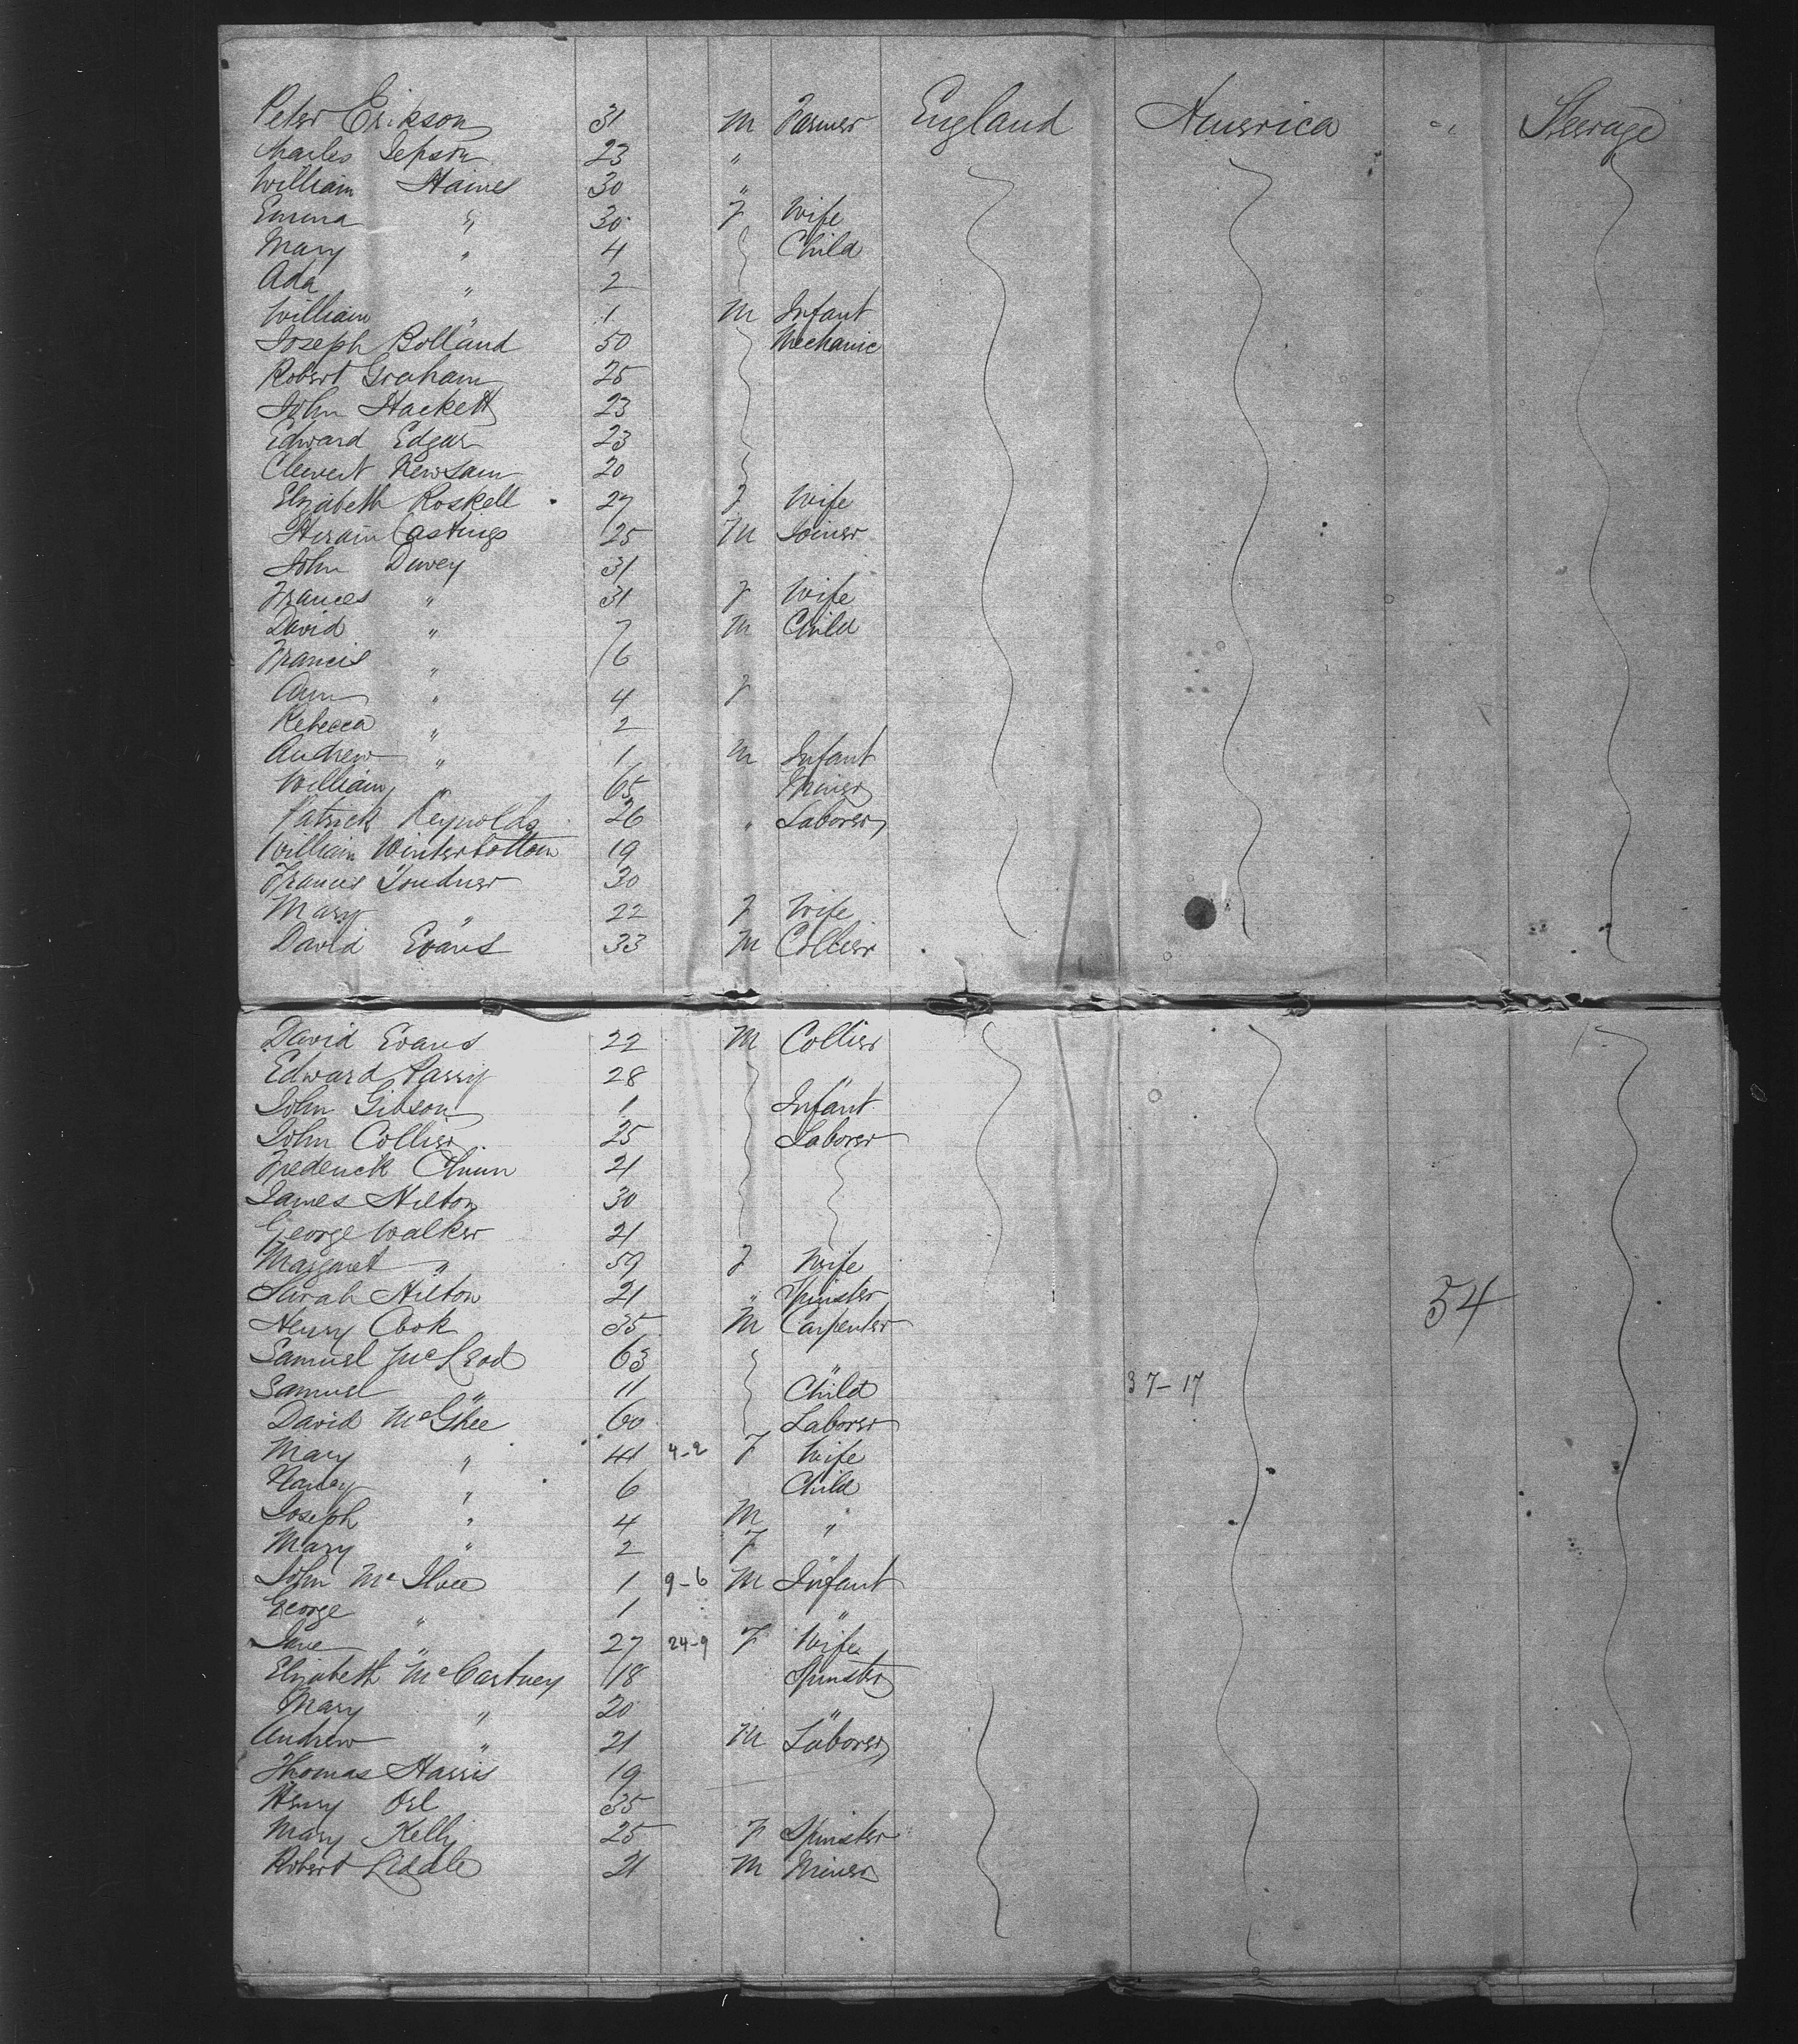 Peter Erikson 31 M Farmer England America " Steerage
Charles Jepson 23 "
William Haines 30 "
Emma " 30 F Wife
Mary " 4 Child
Ada " 2 "
William " 1 M Infant
Joseph Bolland 50 Mechanic
Robert Graham 25
John Hackett 23
Edward Edgar 23
Newsam 20
Elizabeth Roskell 27 F Wife
Hiram Castings 25 M Joiner
John Davey 31
Frances " 31 F Wife
David " 7 M Child
Francis " 6
Ann " 4 F
Rebecca " 2
Andrew " 1 M Infant
William " 65 Miner
Patrick Reynolds 26 " Laborer
William Winterbottom 19
Francis 30
Mary " 22 F Wife
David Evans 33 M Collier
David Evans 22 M Collier
Edward Parry 28 "
John Gibson 1 Infant
John Collier 25 Laborer
Frederick 21
James Hilton 30
George Walker 21
Margaret " 59 F Wife
Sarah Hilton 21 " Spinster
Henry Cook 35 M Carpenter 54
Samuel McLeod 63 "
Samuel " 11 Child 37-17
David McGhee 60 Laborer
Mary " 41 4-2 F Wife
" 6 Child
Joseph " 4 M "
Mary " 2 F
John 1 9-6 M Infant
George " 1 "
Jane " 27 24-9 F Wife
Elizabeth McCartney 18 Spinster
Mary " 20 "
Andrew " 21 M Laborer
Thomas Harris 19
Henry 35
Mary Kelly 25 F Spinster
Robert Liddle 21 M Miner